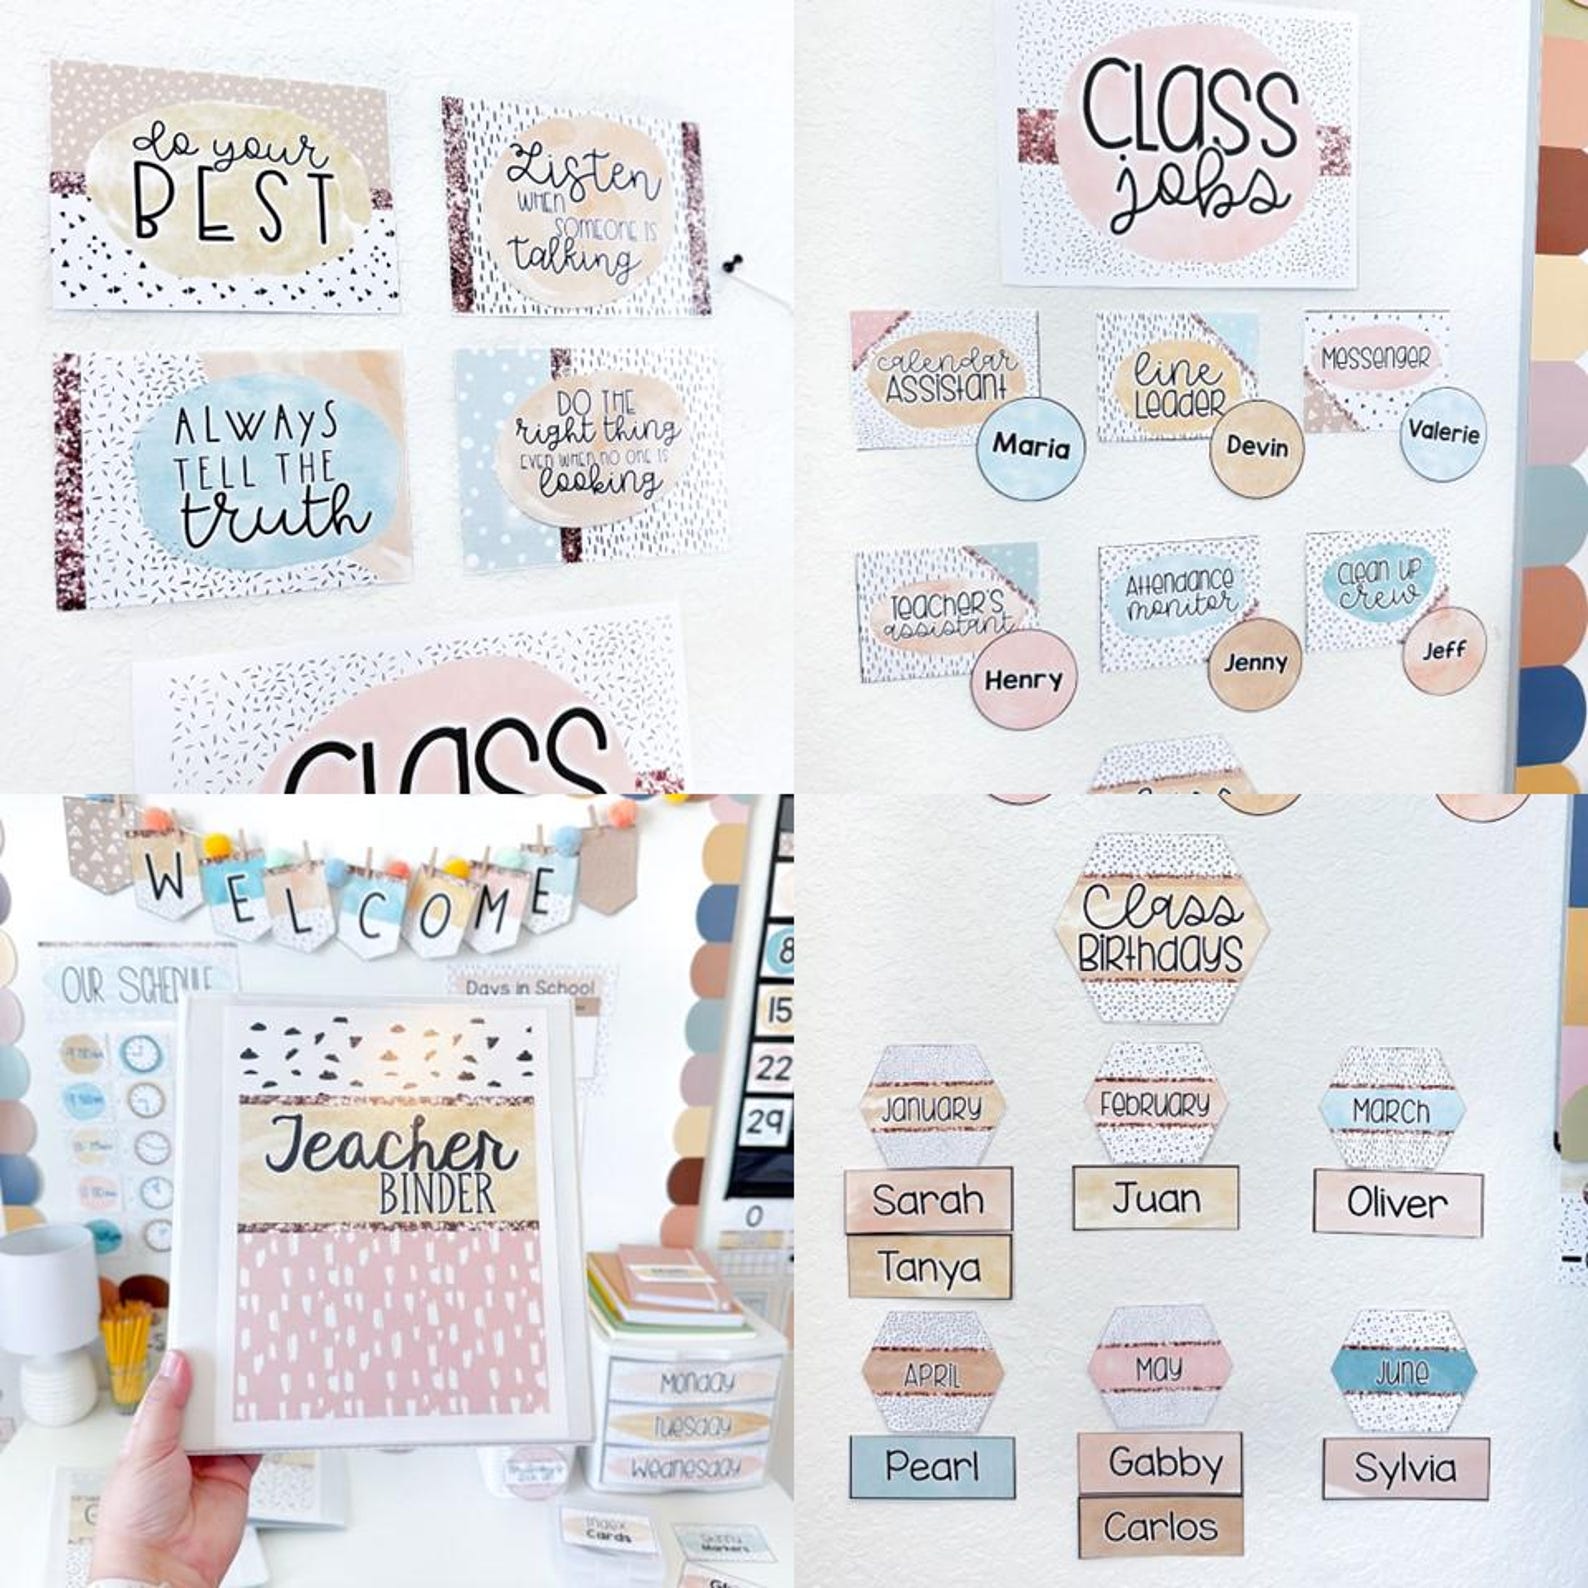 do your
BEST
Listen
WHEN
SOMEONE IS
talking
ALWAYS
TELL THE
truth
DO THE
right thing
EVEN WHEN NO ONE IS
looking
CLASS
CLASS
jobs
calendar
ASSistant
line
LEADER
MESSENGER
Maria
Devin
Valerie
TEACHER'S
assistant
AttENDANCE
monitor
CLEAN UP
crew
Henry
Jenny
Jeff
WELCOME
OUR SCHEDULE
Days in School
Teacher
BINDER
8
15
22
29
0
MONDAY
TUESDAY
WEDNESDAY
Index
Cards
Markers
Class
BIRthDAYS
JANUARY
FEBRUARY
MARCH
Sarah
Juan
Oliver
Tanya
APRIL
MAY
JUNE
Pearl
Gabby
Sylvia
Carlos